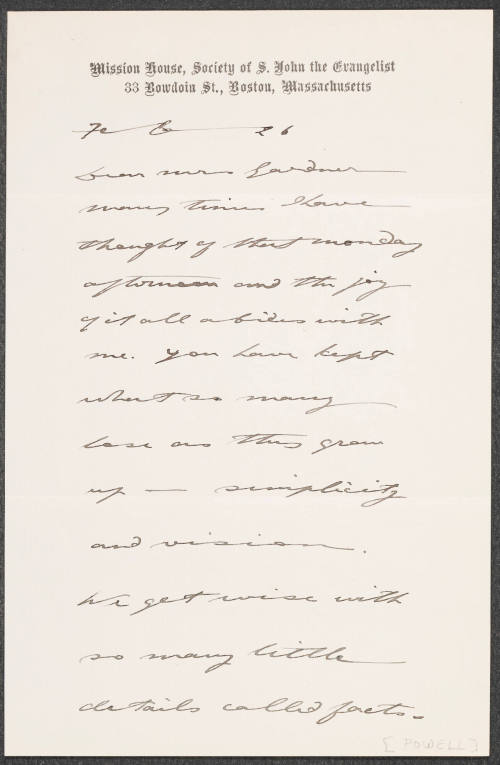 Mission House, Society of S. John the Evangelist
33 Bowdoin St., Boston, Massachusetts
Feb 26
Dear Mrs Gardner
many times I have
thought of that monday
afternoon and the joy
of it all abides with
me. You have kept
what so many
lose as they grow
up — simplicity
and vision.
We get wise with
so many little
details called facts.
[POWELL]